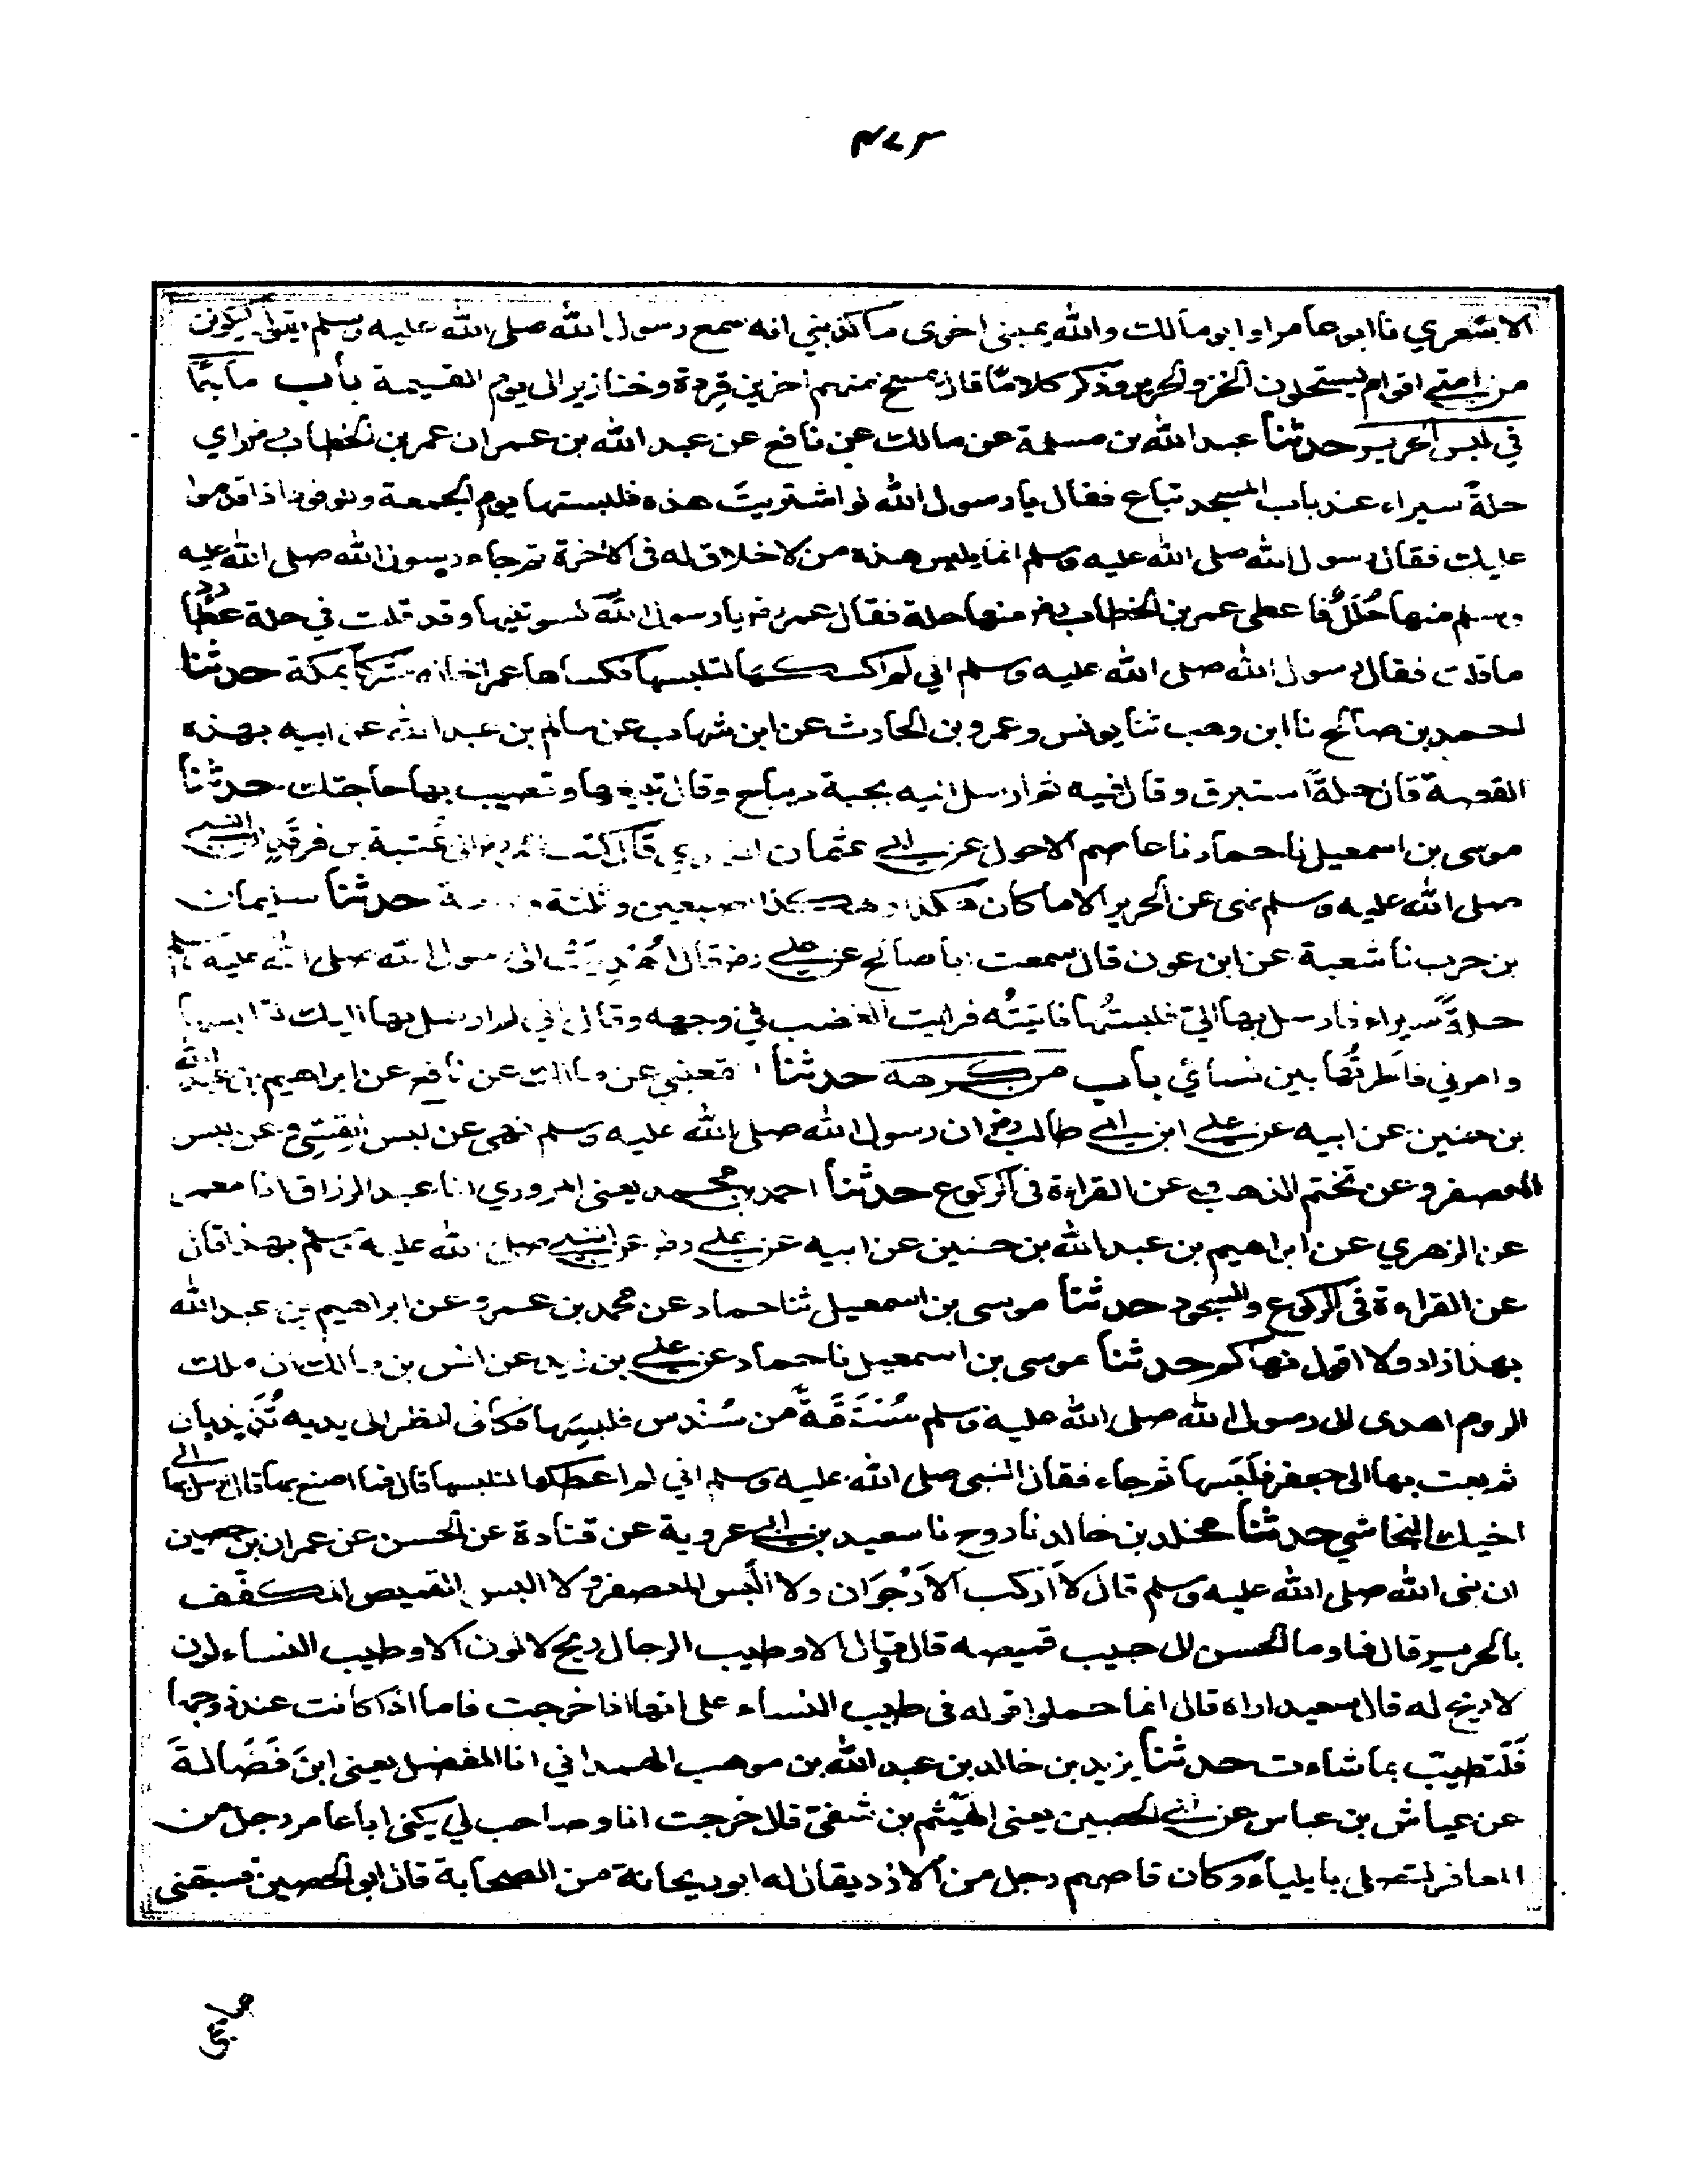 الاشعري نا ابو عامر او ابو مالك والله يمينى اخرى ما كذبني انه سمع رسول الله صلى الله عليه وسلم يقول ليكونن
من امتي اقوام يستحلون الخز والحرير وذكر كلاما قال يمسخ منهم اخرين قردة وخنازير الى يوم القيمة باب ما جاء
في لبس الحرير حدثنا عبد الله بن مسلمة عن مالك عن نافع عن عبد الله بن عمر ان عمر بن الخطاب رض راي
حلة سيراء عند باب المسجد تباع فقال يا رسول الله لو اشتريت هذه فلبستها يوم الجمعة وللوفود اذا قدموا
عليك فقال رسول الله صلى الله عليه وسلم انما يلبس هذه من لا خلاق له فى الاخرة ثم جاء رسول الله صلى الله عليه
وسلم منها حُلَلٌ فاعطى عمر بن الخطاب رض منها حلة فقال عمر رض يا رسول الله كسوتنيها وقد قلت في حلة عطارد
ما قلت فقال رسول الله صلى الله عليه وسلم اني لم اكسكها لتلبسها فكساها عمر اخا له مشركا بمكة حدثنا
احمد بن صالح نا ابن وهب ثنا يونس وعمرو بن الحارث عن ابن شهاب عن سالم بن عبد الله عن ابيه بهذه
القصة قال حلة استبرق وقال فيه ثم ارسل اليه بجبة ديباج وقال تبيعها وتصيب بها حاجتك حدثنا
موسى بن اسمعيل نا حماد نا عاصم الاحول عن ابي عثمان النهدي قال كتب عمر رض الى عتبة بن فرقد ان النبي
صلى الله عليه وسلم نهى عن الحرير الا ما كان هكذا وهكذا اصبعين وثلثة واربعة حدثنا سليمان
بن حرب نا شعبة عن ابن عون قال سمعت ابا صالح عن علي رض قال اُهْدِيَتْ الى رسول الله صلى الله عليه وسلم
حلةٌ سيراء فارسل بها اليّ فلبستُها فاتيتُه فرايت الغضب في وجهه وقال اني لم ارسل بها اليك لتلبسها
وامرني فاَطَرْتُها بين نسائي باب من كرهه حدثنا القعنبي عن مالك عن نافع عن ابراهيم بن عبد الله
بن حنين عن ابيه عن علي ابن ابي طالب رض ان رسول الله صلى الله عليه وسلم نهى عن لبس القِسِّي وعن لبس
المعصفر وعن تختم الذهب وعن القراءة فى الركوع حدثنا احمد بن محمد يعنى المروزي انا عبد الرزاق انا معمر
عن الزهري عن ابراهيم بن عبد الله بن حنين عن ابيه عن علي رض عن النبي صلى الله عليه وسلم بهذا قال
عن القراءة فى الركوع والسجود حدثنا موسى بن اسمعيل ثنا حماد عن محمد بن عمرو عن ابراهيم بن عبد الله
بهذا زاد ولا اقول نهاكم حدثنا موسى بن اسمعيل نا حماد عن علي بن زيد عن انس بن مالك ان ملك
الروم اهدى الى رسول الله صلى الله عليه وسلم مُسْتَقَةً من سُنْدس فلبسَها فكانى انظر الى يديه تُذَبذبان
ثم بعث بها الى جعفر فلَبَسها ثم جاء فقال النبى صلى الله عليه وسلم اني لم اعطكها لتلبسها قال فما اصنع بها قال ارسل بها الى
اخيك النجاشي حدثنا مخلد بن خالد نا روح نا سعيد بن ابي عروبة عن قتادة عن الحسن عن عمران بن حصين
ان نبى الله صلى الله عليه وسلم قال لا اَركب الاَرْجُوَان ولا البَس المعصفر ولا البس القميص المكفَّف
بالحرير قال فاوما الحسن الى جيب قميصه قال وقال الا وطيب الرجال ريح لا لون الا وطيب النساء لون
لا ريح له قال سعيد اراه قال انما حملوا قوله فى طيب النساء على انها اذا خرجت فاما اذا كانت عند زوجها
فَلْتطيّب بما شاءت حدثنا يزيد بن خالد بن عبد الله بن موهب الهمداني انا المفضل يعنى ابنَ فَضَالةَ
عن عياش بن عباس عن ابي الحصين يعنى الهَيْثم بن شَفيّ قال خرجت انا وصاحب لي يكنى ابا عامر رجل من
المعافر لنصلى بايلياء وكان قاصهم رجل من الازد يقال له ابو ريحانة من الصحابة قال ابو الحصين فسبقنى